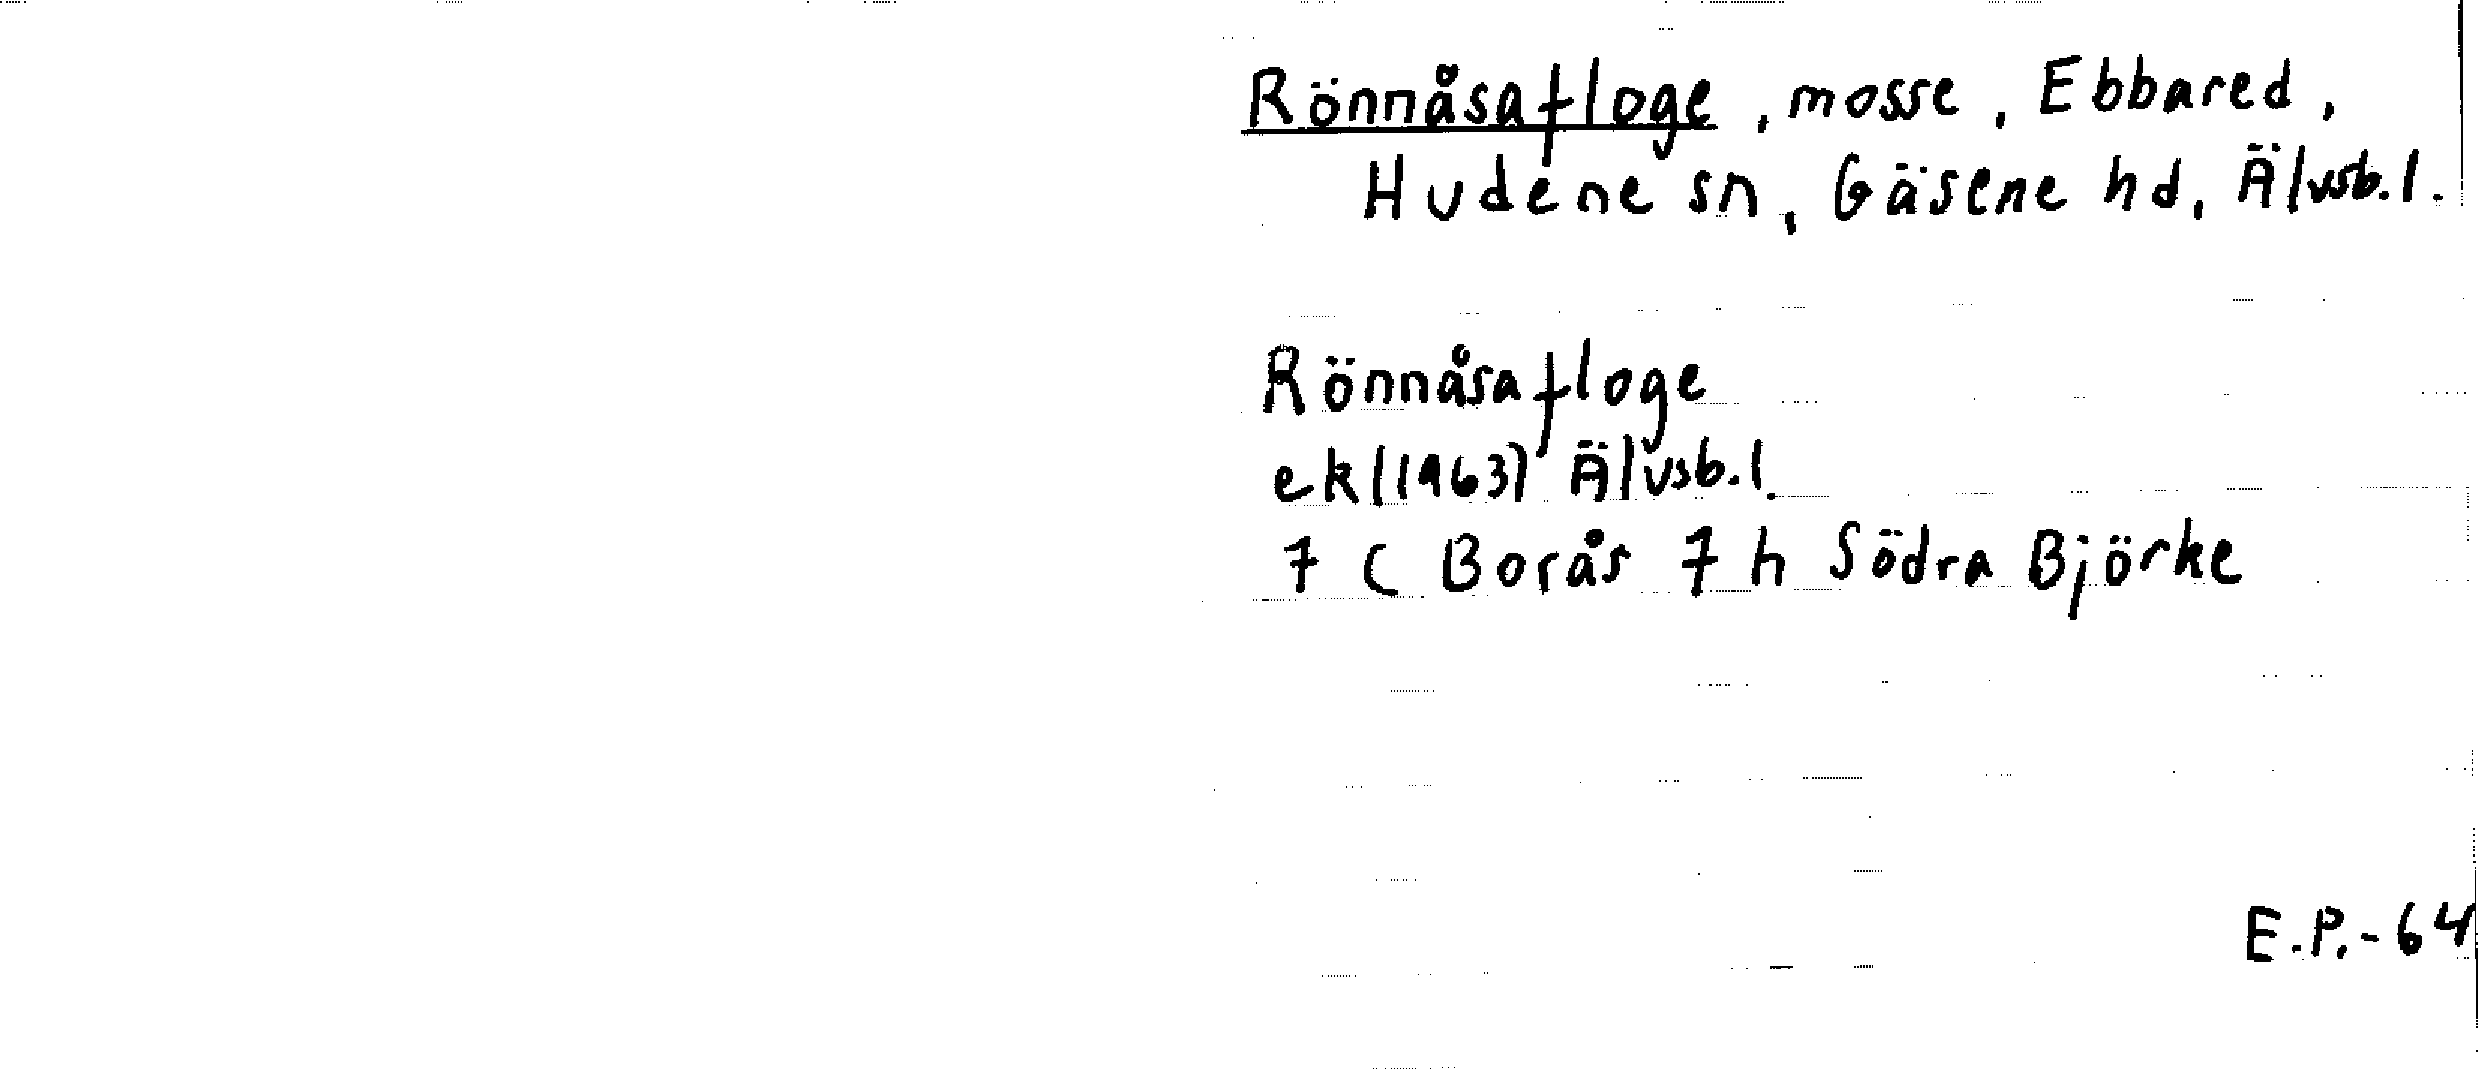 Rönnåsafloge, mosse, Ebbared,
Hudene sn, Gäsene hd, Älvsb.l.
Rönnåsafloge
ek(1963) Älvsb.l.
7 C Borås 7 h Södra Björke
E.P.-64